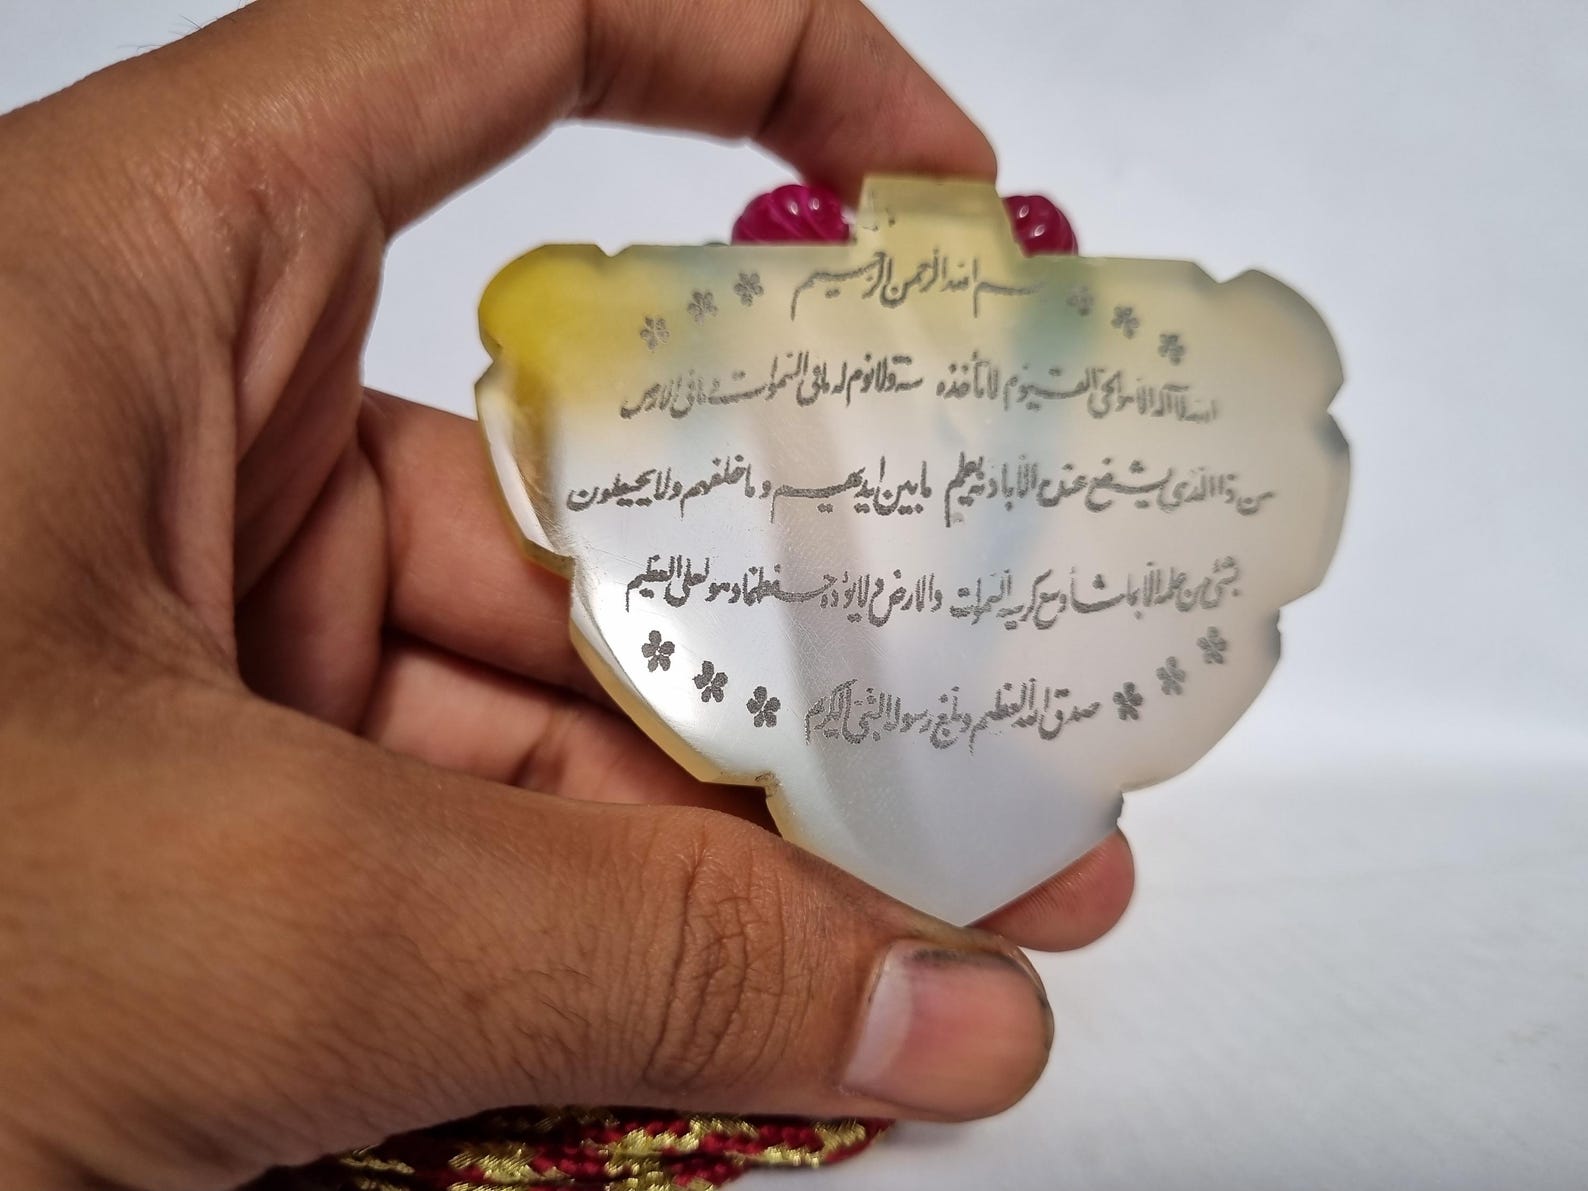 بسم الله الرحمن الرحيم
الله لا آله الا هو الحي القيوم لا تأخذه سنة ولا نوم له ما في السموات و ما في الارض
من ذا الذي يشفع عنده الا باذنه يعلم ما بين ايديهم و ما خلفهم ولا يحيطون
بشئ من علمه الا بما شاء وسع كرسيه السموات والارض و لا يؤده حفظهما وهو العلي العظيم
صدق الله العظيم و بلغ رسوله النبي الكريم